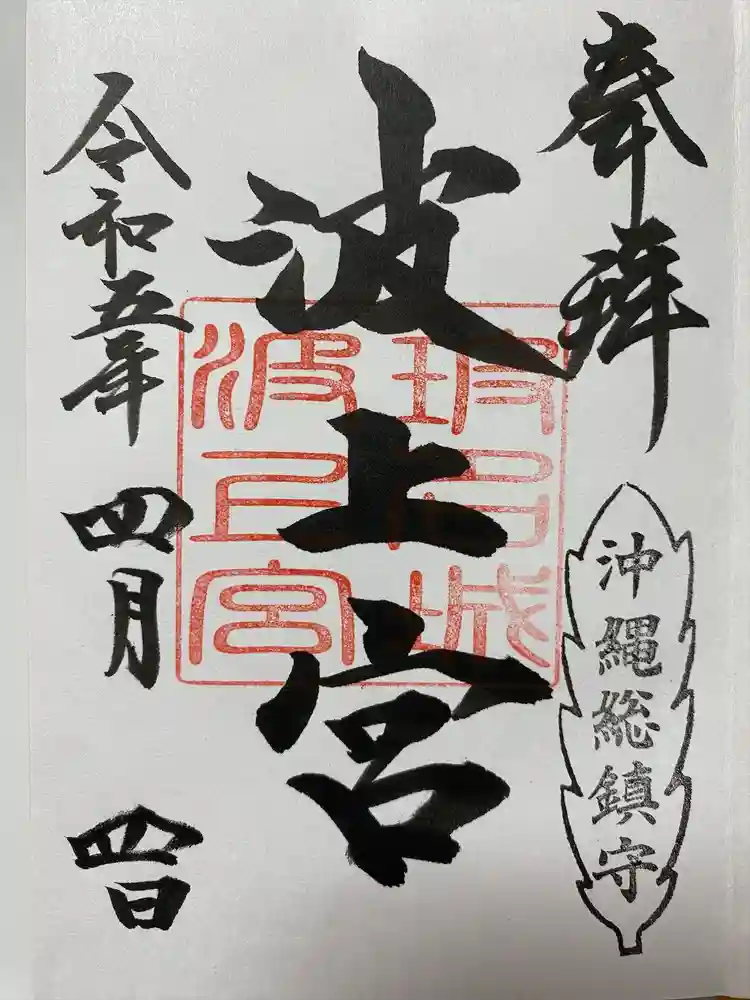 奉拝
沖縄総鎮守
波上宮
波上宮
令和五年 四月 四日